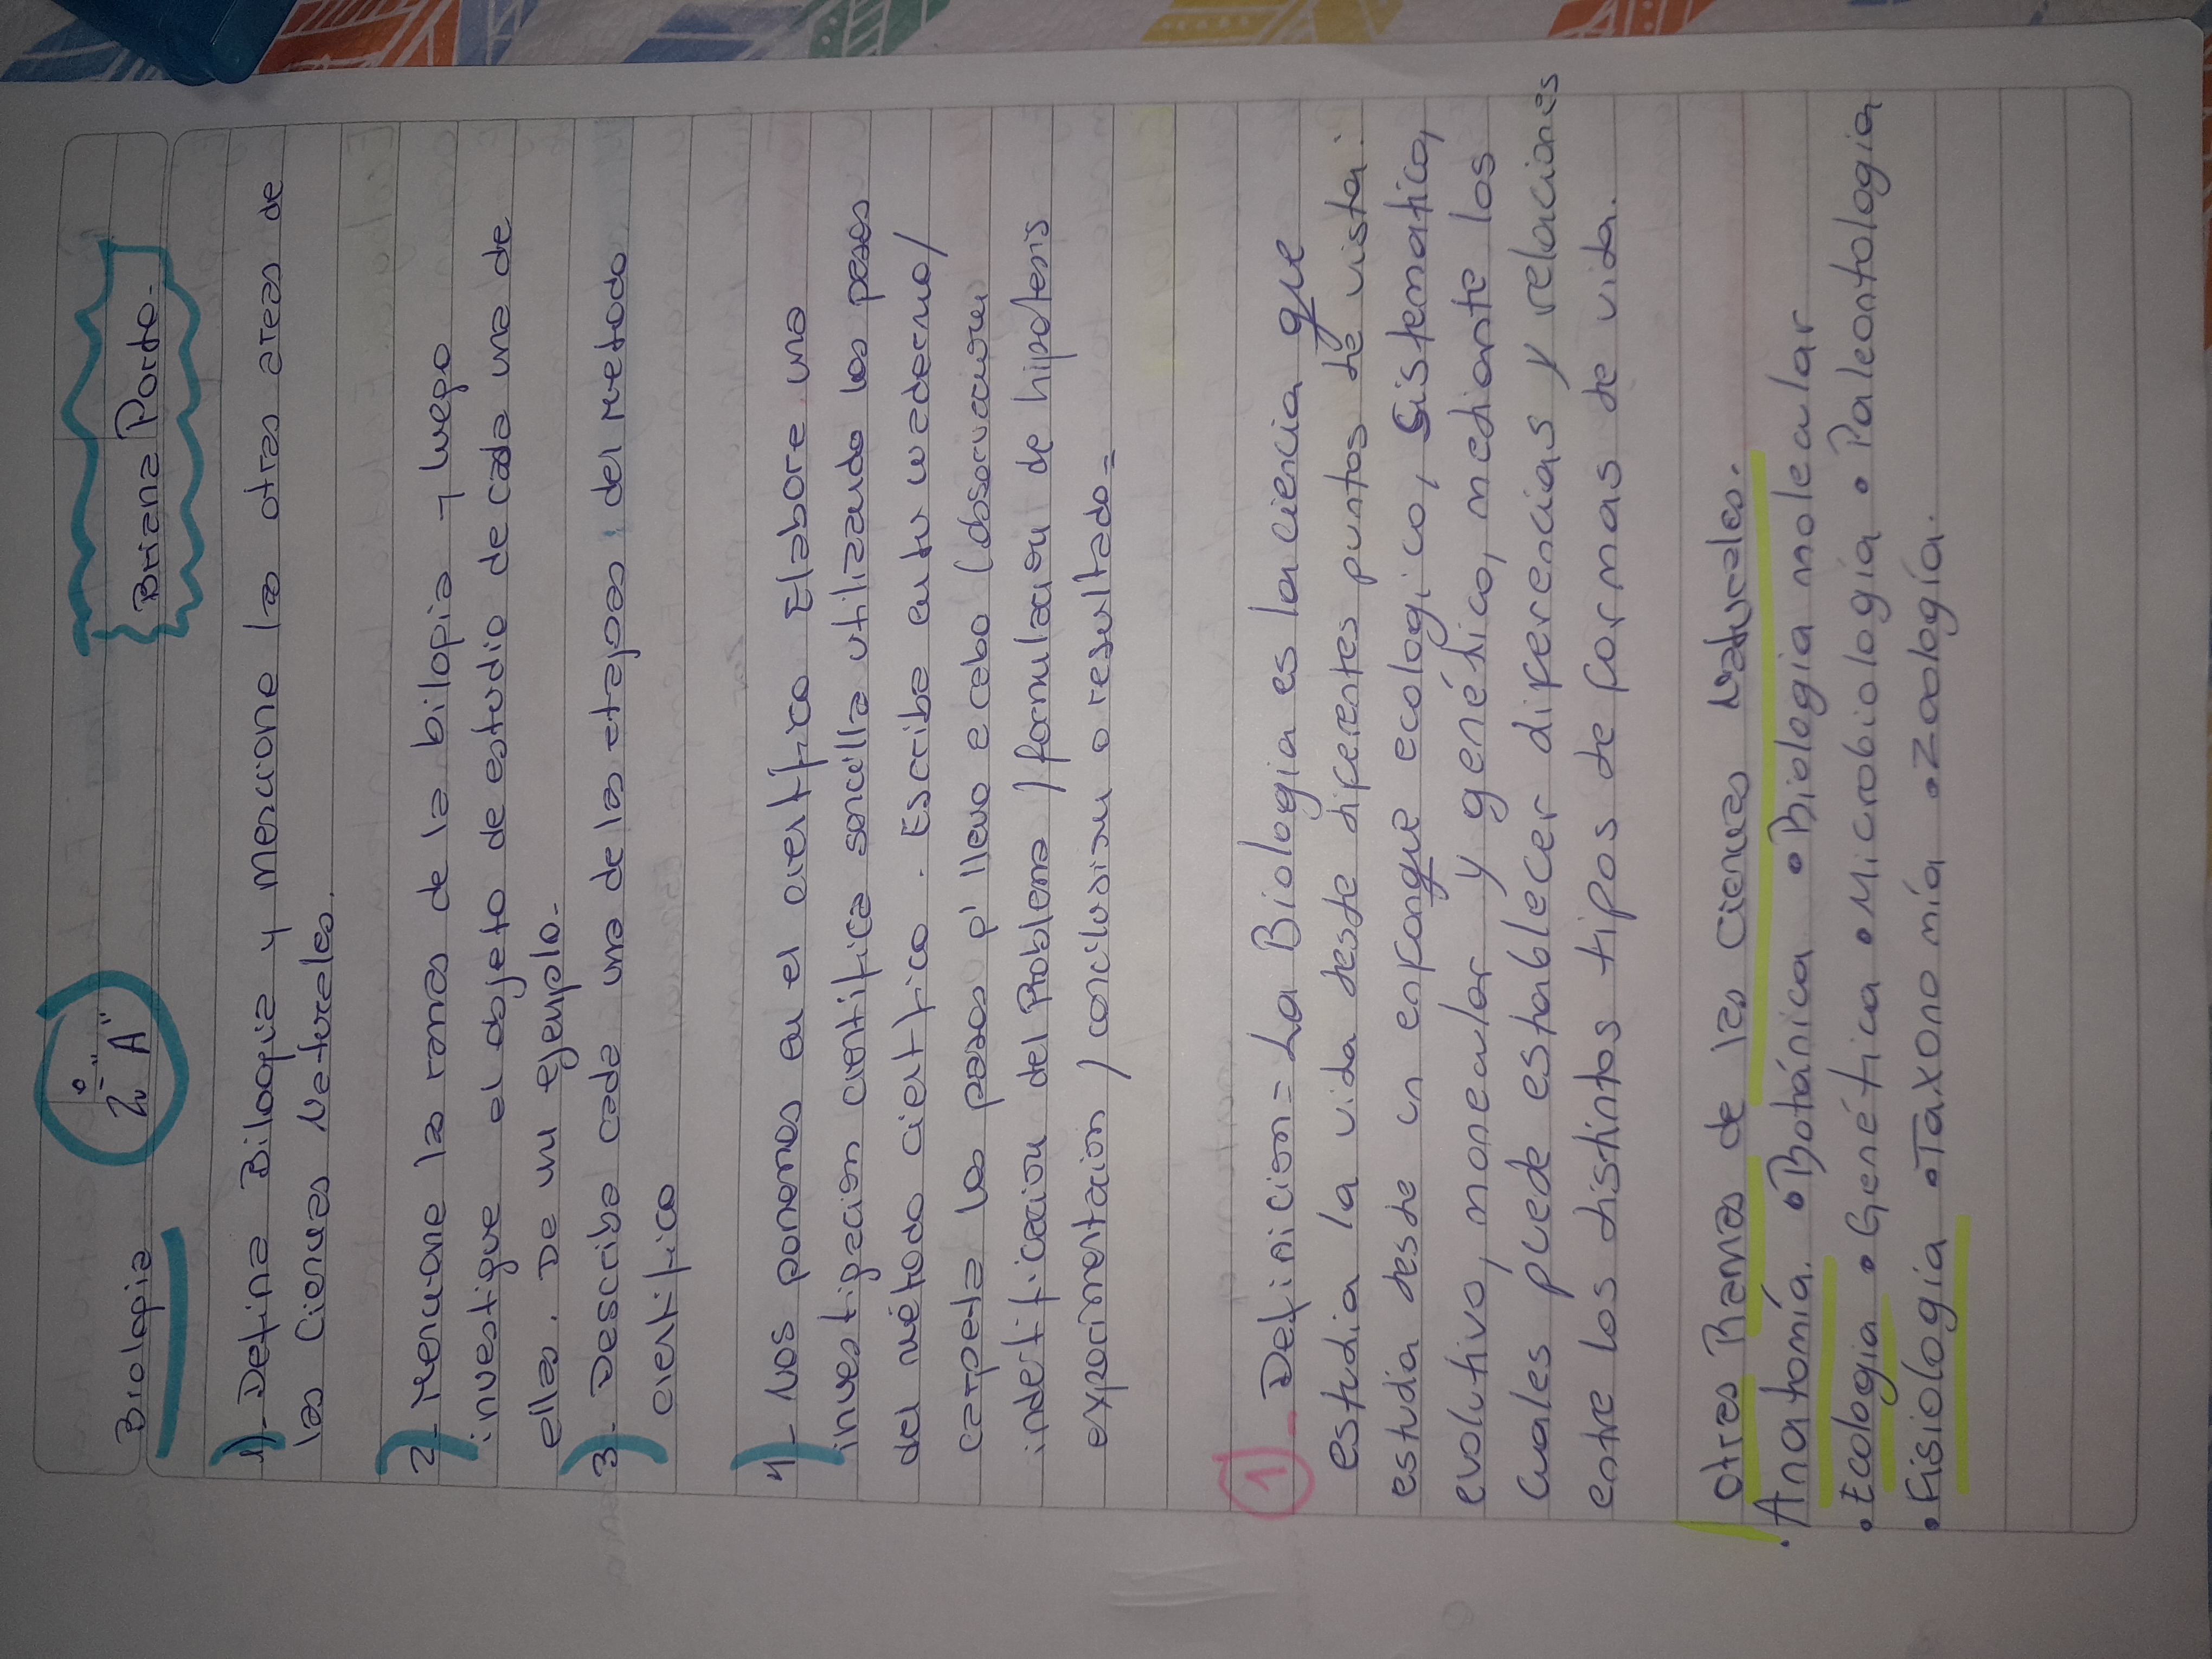 Biologia 2º "A" Briana Porto.
1)- Defina Biloogia y mencione las otras areas de
las Ciencias Naturales.
2- Mencione las ramas de la bilogia y luego
investigue el objeto de estudio de cada una de
ellas. De un ejemplo.
3)- Describa cada una de las etapas del metodo
cientifico
4)- Nos ponemos en el cientifico Elabore una
investigacion cientifica sencilla utilizando los pasos
del método cientifico. Escriba en tu cuaderno/
carpeta los pasos p' llevo a cabo (observacion
indertificacion del Problema / formulacion de hipotesis
experimentacion / conclusion o resultado=
1 - Definicion= La Biologia es la ciencia que
estudia la vida desde diferentes puntos de vista.
estudia desde un enfonque ecologico, Sistematico,
evolutivo, monecular y genético, mediante los
Cuales puede establecer diferencias y relaciones
entre los distintos tipos de formas de vida.
Otras Ramas de las Ciencias Naturales.
• Anatomía. • Botánica • Biologia molecular
• Ecologia • Genética • Microbiología • Paleontologia
• Fisiología • Taxonomía • Zoología.